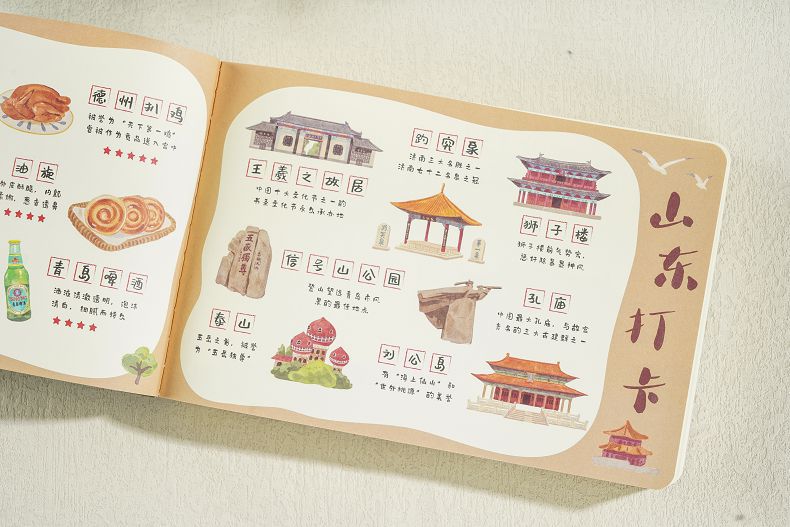 德州扒鸡
被誉为“天下第一鸡”
曾被作为贡品送入宫中
油旋
外皮酥脆，内瓤
柔嫩，葱香透鼻
青岛啤酒
酒液清澈透明，泡沫
清白，细腻而持久
王羲之故居
中国十大文化节之一的
书圣文化节永久承办地
趵突泉
济南三大名胜之一
济南七十二名泉之冠
趵突泉
第一泉
狮子楼
狮子楼前气势宏，
五岳独尊
泰山
五岳之首，被誉
为“五岳独尊”
信号山公园
登山望远青岛市风
景的最佳地点
孔庙
中国最大孔庙，与故宫
齐名的三大古建群之一
刘公岛
有“海上仙山”和
“世外桃源”的美誉
山东打卡